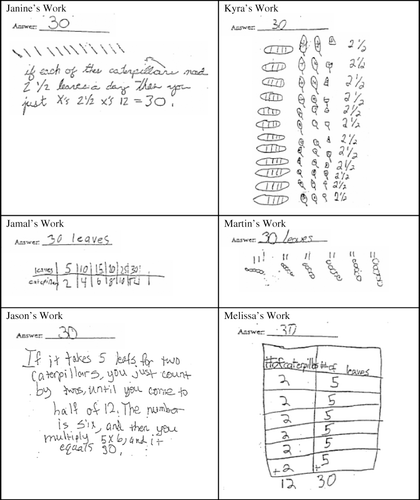 Janine's Work
Answer: 30
if each of the caterpillars had
2 1/2 leaves a day then you
just x's 2 1/2 x's 12 = 30.
Kyra's Work
Answer: 30
2 1/2
2 1/2
2 1/2
2 1/2
2 1/2
2 1/2
2 1/2
2 1/2
2 1/2
2 1/2
2 1/2
2 1/2
Jamal's Work
Answer: 30 leaves
leaves 5 10 15 20 25 30
2 4 6 8 10 12
Martin's Work
Answer: 30 leaves
Jason's Work
Answer: 30
If it takes 5 leafs for two
caterpillars, you just count
by twos, until you come to
half of 12. The number
is six, and then you
multiply 5x6, and it
equals 30.
Melissa's Work
Answer: 30
# of caterpillars # of leaves
2 5
2 5
2 5
2 5
2 5
+2 +5
12 30